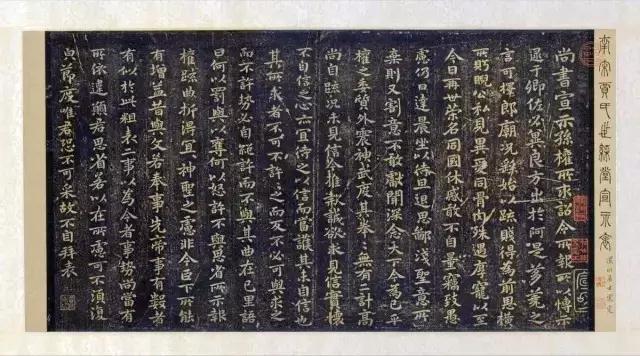 南宋賈氏世綵堂宣示表
尚書宣示孫權所求詔令所報所以博示
逮于卿佐必冀良方出於阿是芻蕘之
言可擇郎廟況繇始以疏賤得為前恩橫
所盼睨公私見異愛同骨肉殊遇厚寵以至
今日再世榮名同國休慼敢不自量竊致愚
慮仍日達晨坐以待旦退思鄙淺聖意所
棄則又割意不敢獻聞深念天下今為已平
權之委質外震神武度其拳拳無有二計高
尚自疏況未見信今推款誠欲求見信實懷
不自信之心亦宜待之以信而當護其未自信也
其所求者不可不許許之而反不必可與求之
而不許勢必自絕許而不與其曲在己里語
曰何以罰與以奪何以怒許不與思省所示報
權疏曲折得宜宜神聖之慮非今臣下所能
有增益昔與文若奉事先帝事有數者
有似於此粗表二事以為今者事勢尚當有
所依違願君思省若以在所慮可不須復
貌節度唯君恐不可采故不自拜表